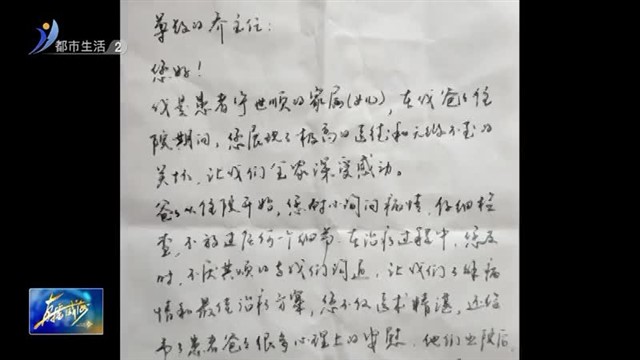 都市生活 2
尊敬的乔主任：
您好！
我是患者宇世顺的家属(女儿)，在我爸爸住
院期间，您展现了极高的医德和无微不至的
关怀，让我们全家深受感动。
爸爸从住院开始，您时时询问病情，仔细检
查，不放过任何一个细节。在治疗过程中，您及
时、不厌其烦的与我们沟通，让我们了解病
情和最佳治疗方案，您不仅医术精湛，还给
予了患者爸爸很多心理上的安慰，他们出院后